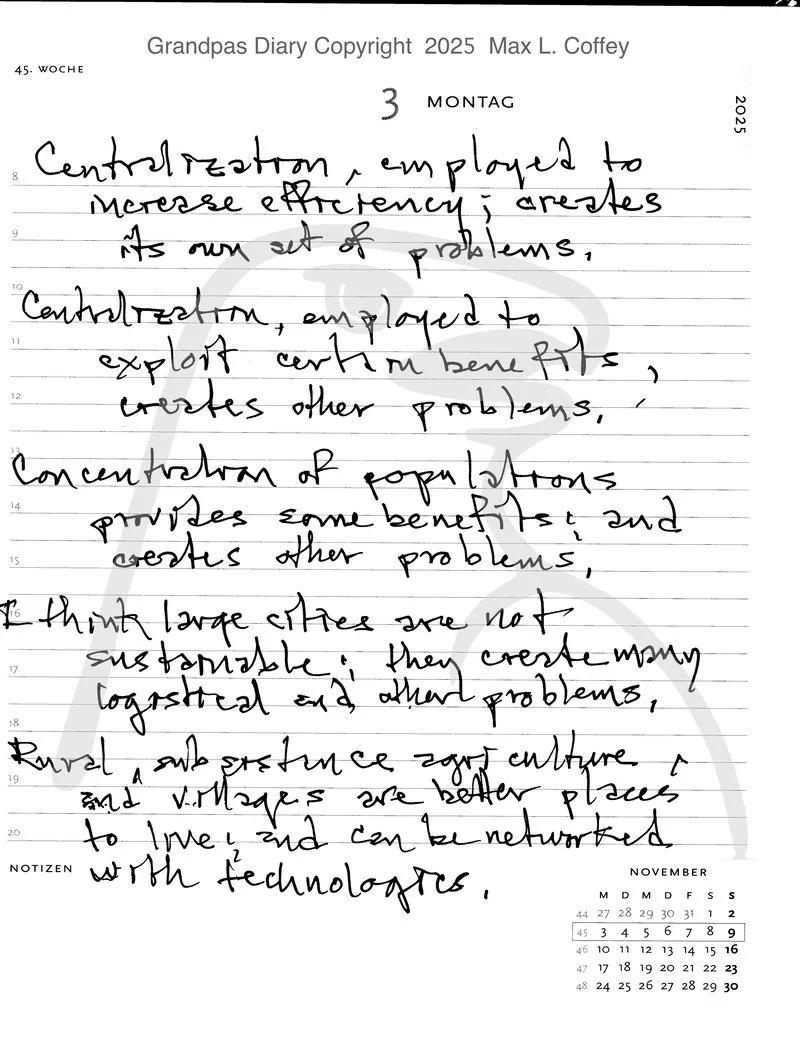 Grandpas Diary Copyright 2025 Max L. Coffey
45. WOCHE
3 MONTAG
2025
8
Centralization, employed to
increase efficiency; creates
9
its own set of problems.
10
Centralization, employed to
11
exploit certain benefits,
12
creates other problems.
13
Concentration of populations
14
provides some benefits; and
15
creates other problems.
16
I think large cities are not
sustainable; they create many
17
logistical and other problems.
18
Rural, subsistence agriculture,
19
and villages are better places
20
to live; and can be networked
NOTIZEN
with technologies.
NOVEMBER
M D M D F S S
44 27 28 29 30 31 1 2
45 3 4 5 6 7 8 9
46 10 11 12 13 14 15 16
47 17 18 19 20 21 22 23
48 24 25 26 27 28 29 30